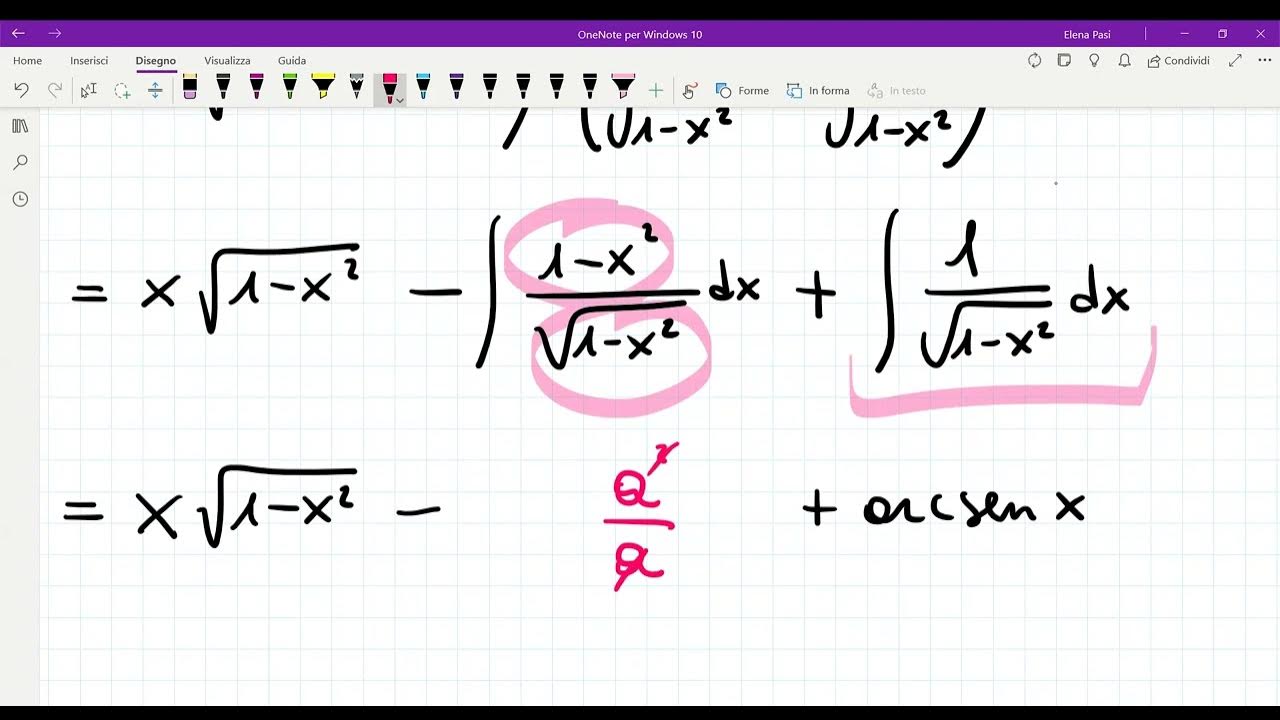 OneNote per Windows 10
Elena Pasi
Home Inserisci Disegno Visualizza Guida Condividi
Forme In forma In testo
√1-x² √1-x² )
= x √1-x² - ∫ 1-x² / √1-x² dx + ∫ 1 / √1-x² dx
= x √1-x² - a² / a + arcsen x